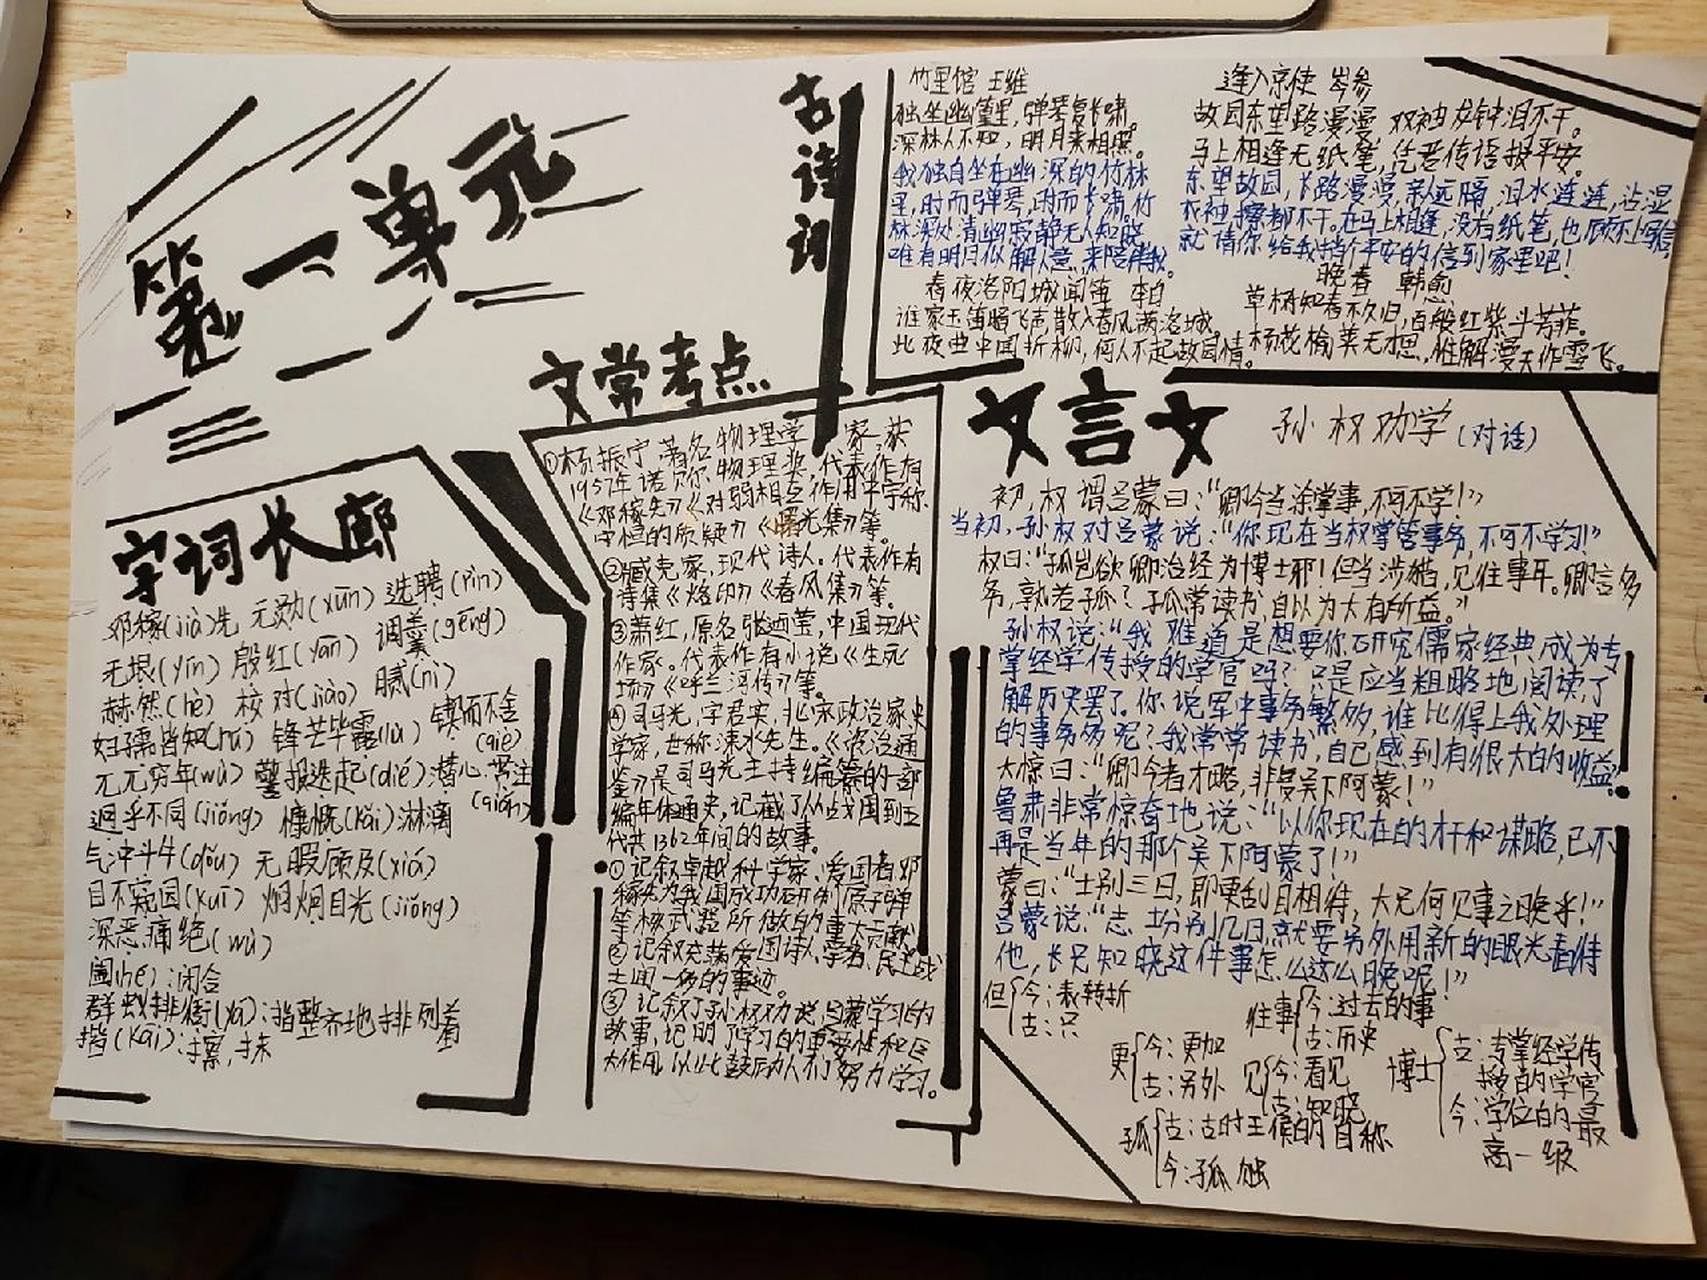 第一单元
古诗词
竹里馆 王维
独坐幽篁里，弹琴复长啸。
深林人不知，明月来相照。
我独自坐在幽深的竹林
里，时而弹琴，时而长啸。竹
林深处清幽寂静无人知晓，
唯有明月似解人意，来陪伴我。
春夜洛阳城闻笛 李白
谁家玉笛暗飞声，散入春风满洛城。
此夜曲中闻折柳，何人不起故园情。
逢入京使 岑参
故园东望路漫漫，双袖龙钟泪不干。
马上相逢无纸笔，凭君传语报平安。
东望故园，长路漫漫，亲人远隔，泪水连连，沾湿
衣袖，擦都不干。在马上相逢，没有纸笔，也顾不上写信
就请你给我捎个平安的信到家里吧！
晚春 韩愈
草树知春不久归，百般红紫斗芳菲。
杨花榆荚无才思，惟解漫天作雪飞。
文常考点
①杨振宁，著名物理学家，获
1957年诺贝尔物理奖，代表作有
《邓稼先》《对弱相互作用中宇称
守恒的质疑》《曙光集》等。
②臧克家，现代诗人。代表作有
诗集《烙印》《春风集》等。
③萧红，原名张迺莹，中国现代
作家。代表作有小说《生死
场》《呼兰河传》等。
④司马光，字君实，北宋政治家史
学家，世称涑水先生。《资治通
鉴》是司马光主持编纂的一部
编年体通史，记载了从战国到五
代共1362年间的故事。
①记叙卓越科学家、爱国者邓
稼先为我国成功研制原子弹
等核武器所做的重大贡献。
②记叙充满爱国诗人、学者、民主战
士闻一多的事迹。
③记叙了孙权劝说吕蒙学习的
故事，记明了学习的重要性和巨
大作用，以此鼓励人们努力学习。
字词长廊
邓稼(jià)先 元勋(xūn) 选聘(pìn)
无垠(yín) 殷红(yān) 调羹(gēng)
赫然(hè) 校对(jiào) 腻(nì)
妇孺皆知(rú) 锋芒毕露(lù) 锲而不舍
(qiè)
兀兀穷年(wù) 警报迭起(dié) 潜心贯注
(qián)
迥乎不同(jiǒng) 慷慨(kǎi)淋漓
气冲斗牛(dǒu) 无暇顾及(xiá)
目不窥园(kuī) 炯炯目光(jiǒng)
深恶痛绝(wù)
阖(hé)：闭合
群蚁排衙(yá)：指整齐地排列着
揩(kāi)：擦，抹
文言文 孙权劝学(对话)
初，权谓吕蒙曰：“卿今当涂掌事，不可不学！”
当初，孙权对吕蒙说：“你现在当权掌管事务，不可不学习！”
权曰：“孤岂欲卿治经为博士邪！但当涉猎，见往事耳。卿言多
务，孰若孤？孤常读书，自以为大有所益。”
孙权说：“我难道是想要你研究儒家经典成为专
掌经学传授的学官吗？只是应当粗略地阅读，了
解历史罢了。你说军中事务繁多，谁比得上我处理
的事务多呢？我常常读书，自己感到有很大的收益。”
大惊曰：“卿今者才略，非复吴下阿蒙！”
鲁肃非常惊奇地说：“以你现在的才干和谋略，已不
再是当年的那个吴下阿蒙了！”
蒙曰：“士别三日，即更刮目相待，大兄何见事之晚乎！”
吕蒙说：“志士分别几日，就要另外用新的眼光看待
他，长兄知晓这件事怎么这么晚呢！”
但 今：表转折
古：只
往事 今：过去的事
古：历史
更 今：更加
古：另外
见 今：看见
古：知晓
博士 古：专掌经学传
授的学官
今：学位的最
高一级
孤 古：古时王侯的自称
今：孤独